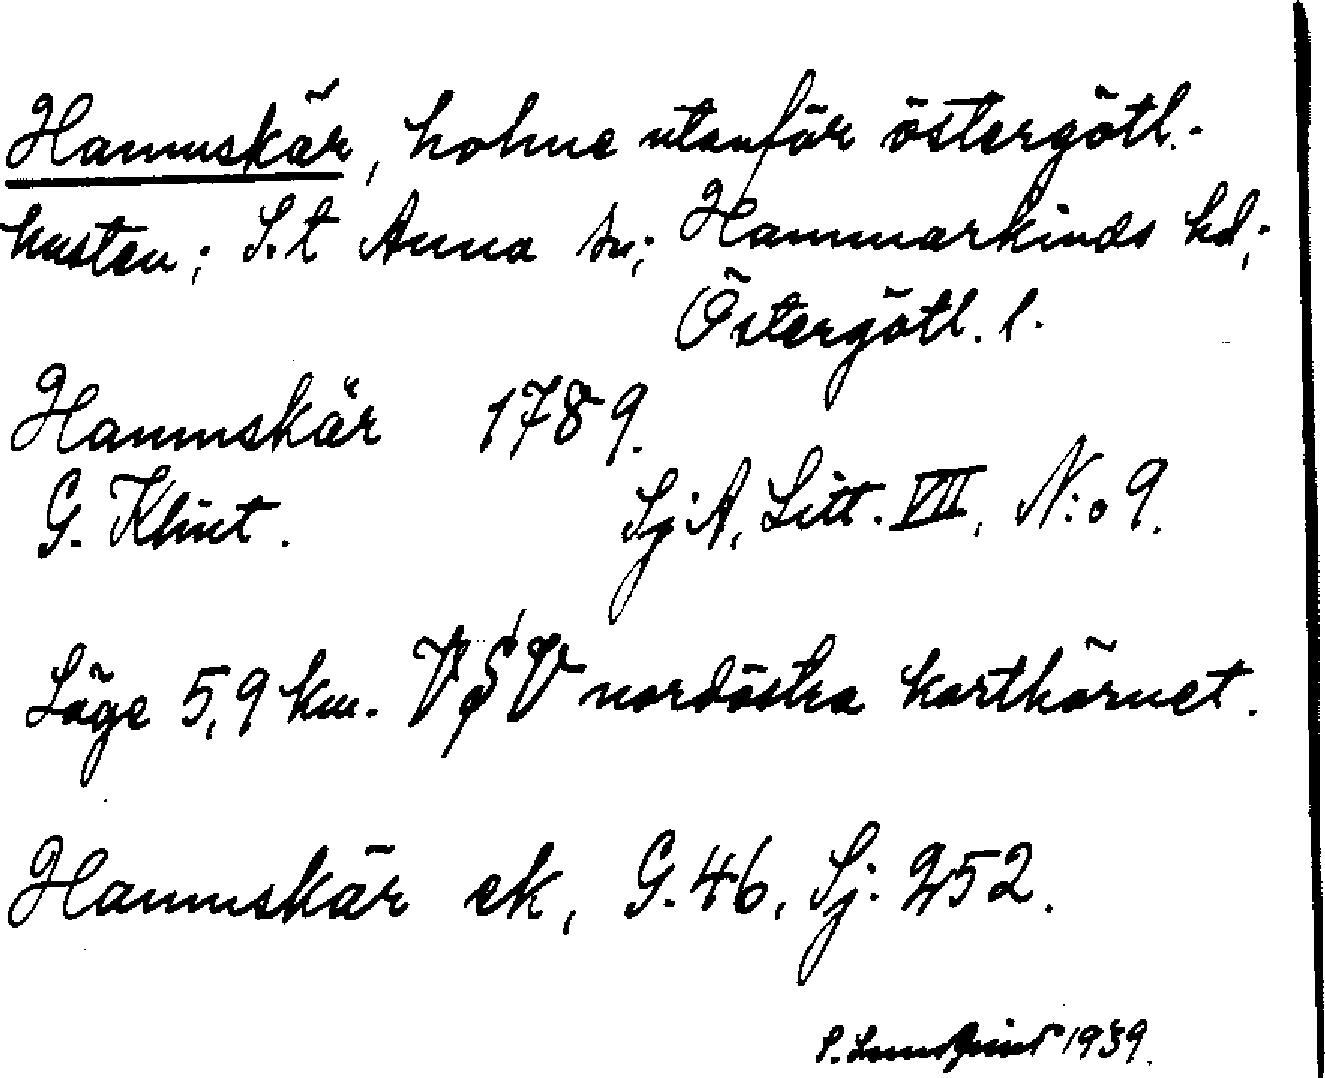 Hamnskär, holme utanför östergötl.-
kusten; S:t Anna sn; Hammarkinds hd;
Östergötl. l.
Hamnskär 1789.
G. Klint. SjA, Litt. VII, N:o 9.
Läge 5,9 km. VSV nordöstra karthörnet.
Hamnskär ek, G. 46, Sj. 252.
S. Lundquist 1939.